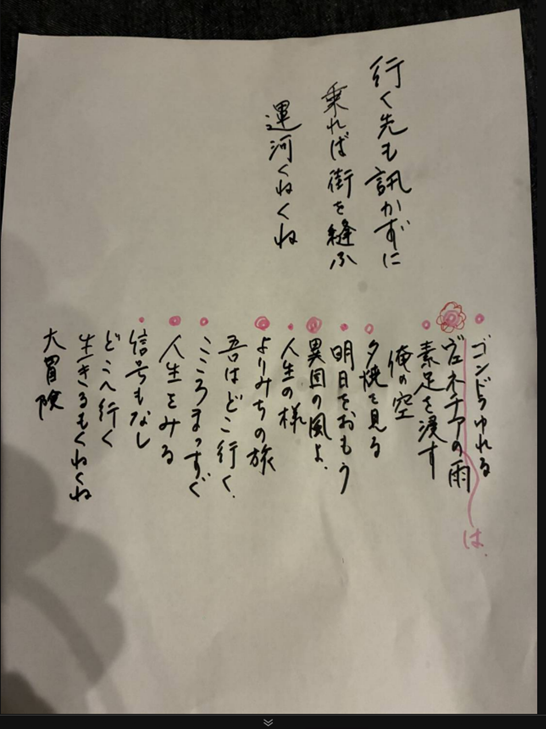 行く先も訊かずに
乗れば街を縫ふ
運河くねくね
ゴンドラゆれる
ヴェネチアの雨
は
素足を浸す
俺の空
夕焼を見る
明日をおもう
異国の風よ
人生の様
よりみちの旅
吾はどこ行く
こころまっすぐ
人生をみる
信号もなし
どこへ行く
生きるもくねくね
大冒険